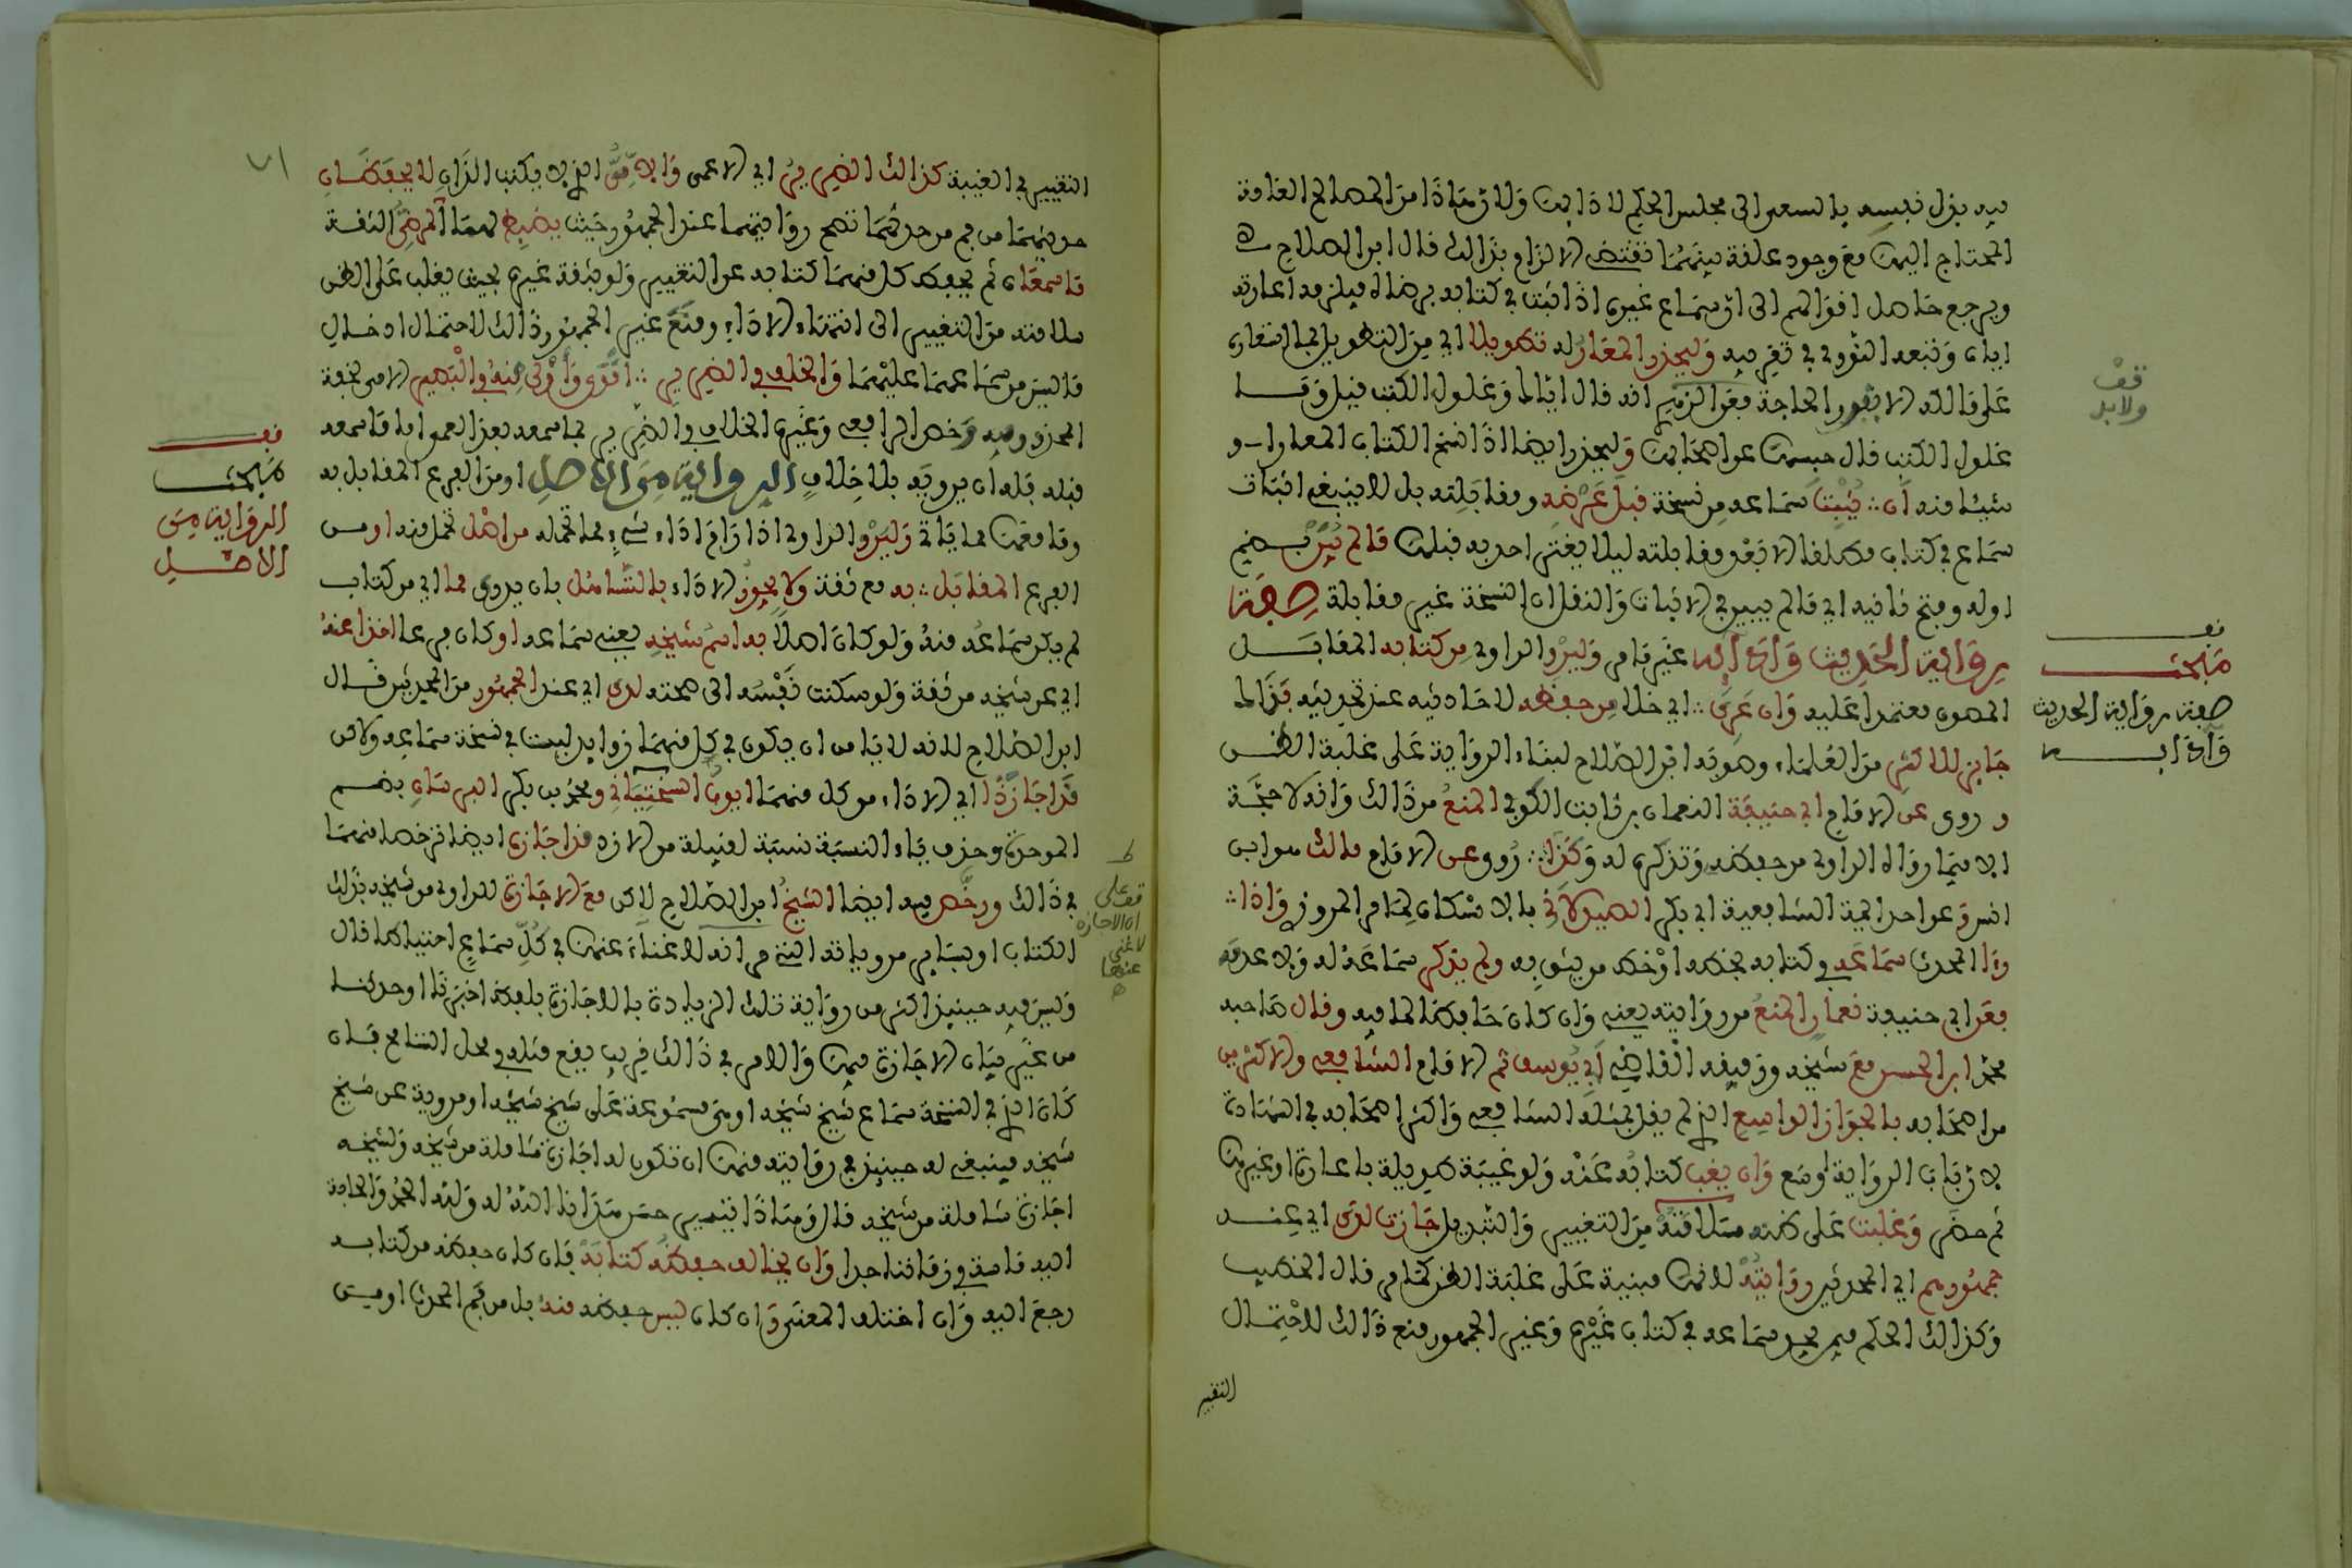 فيه بذل نفسه بالسعي الى مجلس الحكم لاذايها ولان هذا من المصالح العامة
المحتاج اليها مع وجود علقة بينهما تقتضي الالزام بذالك قال ابن الصلاح
ويرجع حاصل اقوالهم الى ان سماع غيره اذا ثبت في كتابه برضاه فيلزمه اعارته
اياه وتبعه النووي في تقريبه وليحذر المعار له تطويلا اي من التطويل بما استعاره
على مالكه الا بقدر الحاجة فعن الزهري انه قال اياك وغلول الكتب قيل وما
غلول الكتب قال حبسها عن اصحابها وليحذر ايضا اذا نسخ الكتاب المعار او
شيئا منه ان يثبت سماعه من نسخة قبل عرضه ومقابلته بل لا ينبغي اثبات
سماع في كتاب مطلقا الا بعد مقابلته ليلا يغتر احد به قبلها ما لم يبن بضم
اوله وفتح ثانيه اي ما لم يبين في الاثبات والنقل ان النسخة غير مقابلة صفة
رواية الحديث وادايه غير ما مر وليرو الراوي من كتابه المقابل
المصون معتمدا عليه وان عري اي خلا من حفظه لاحاديثه عند تحديثه فذاك
جايز للاكثر من العلماء وصوبه ابن الصلاح لبناء الرواية على غلبة الظن
وروي عن الامام ابي حنيفة النعمان بن ثابت الكوفي المنع من ذالك وانه لا حجة
الا فيما رواه الراوي من حفظه وتذكره له وكذا روي عن الامام مالك هو ابن
انس وعن احد ايمة الشافعية ابي بكر الصيدلاني بالاسكان لما مر المروزي واذا
رءا المحدث سماعه في كتابه بخطه او خط من يثق به ولم يذكر سماعه له ولا عدمه
فعن ابي حنيفة نعمان المنع من روايته يعني وان كان حافظا لما فيه وقال صاحبه
محمد ابن الحسن مع شيخه ورفيقه القاضي ابي يوسف ثم الامام الشافعي والاكثرين
من اصحابه بالجواز الواسع الذي لم يقل بمثله الشافعي واكثر اصحابه في الشهادة
لان باب الرواية اوسع وان يغب كتابه عنه ولو غيبة طويلة باعارة او غيرها
ثم حضر وغلبت على ظنه سلامته من التغيير والتبديل جازت لدى اي عند
جمهورهم اي المحدثين روايته لانها مبنية على غلبة الظن كما مر قال الخطيب
وكذالك الحكم فيمن يجد سماعه في كتاب غيره وغير الجمهور منع ذالك لاحتمال
التغيير
قف
ولابد
قف
مبحث
صفة رواية الحديث
وادايه
التغيير في الغيبة كذالك الضرير اي الاعمى والامي الذي لا يكتب اللذان لا يحفظان
حديثهما من فم من حدثهما تصح روايتهما عند الجمهور حيث يضبط لهما المرضي الثقة
ما سمعاه ثم يحفظ كل منهما كتابه عن التغيير ولو بثقة غيره بحيث يغلب على الظن
سلامته من التغيير الى انتهاء الاداء ومنع غير الجمهور ذالك لاحتمال ادخال
ما ليس من سماعهما عليهما والخلف في الضرير اقوى واولى منه في البصير الامي لخفة
المحذور فيه وخص الرافعي وغيره الخلاف في الضرير بما سمعه بعد العمى اما ما سمعه
قبله فله ان يرويه بلا خلاف الرواية من الاصل او من الفرع المقابل به
وما معها مما ياتي وليرو الراوي اذا رام اداء شيء مما تحمله من اصل تحمل منه او من
الفرع المقابل به مع ثقة ولا يجوز الاداء بالتساهل بان يروي مما اي من كتاب
لم يكن سماعه منه ولو كان اصلا به اسم شيخه يعني سماعه او كان فرعا اخذ عنه
اي عن شيخه من ثقة ولو سكنت نفسه الى صحته لدى اي عند الجمهور من المحدثين قال
ابن الصلاح لانه لا يامن ان يكون في كل منهما زوايد ليست في نسخة سماعه ولاكن
قد اجازا اي الاداء من كل منهما ايوب السختياني ومحمد بن بكر البرساني بضم
الموحدة وحذف ياء النسبة نسبة لقبيلة من الازد قد اجازه ايضا ترخصا منهما
في ذالك ورخص فيه ايضا الشيخ ابن الصلاح لاكن مع الاجازة للراوي من شيخه بذلك
الكتاب او بساير مروياته الذي مر انه لا غناء عنها في كل سماع احتياطا قال
وليس فيه حينيذ اكثر من رواية تلك الزيادة بالاجازة بلفظ اخبرنا او حدثنا
من غير بيان الاجازة فيها والامر في ذالك قريب يقع مثله في محل التسامح فان
كان الذي في النسخة سماع شيخ شيخه او هي مسموعة على شيخ شيخه او مروية عن شيخ
شيخه فينبغي له حينيذ في روايته منها ان تكون له اجازة شاملة من شيخه ولشيخه
اجازة شاملة من شيخه قال وهذا تيسير حسن هدانا الله له ولله الحمد والحاجة
اليه ماسة في زماننا جدا وان يخالف حفظه كتابه فان كان حفظه من كتابه
رجع اليه وان اختلف المعنى وان كان ليس حفظه منه بل من فم المحدث او من
٧١
قف
مبحث
الرواية من
الاصل
ط
قف على
ان الاجازة
لا غنى
عنها